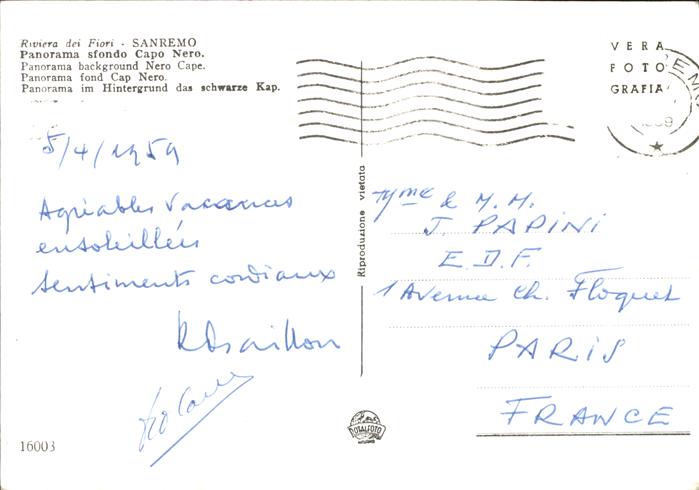 Riviera dei Fiori - SANREMO
Panorama sfondo Capo Nero.
Panorama background Nero Cape.
Panorama fond Cap Nero.
Panorama im Hintergrund das schwarze Kap.
VERA
FOTO
GRAFIA
5/4/1959
Agréables vacances
ensoleillées
sentiments cordiaux
Riproduzione vietata
& M. M.
J. PAPINI
E.D.F.
1 Avenue Ch. Floquet
PARIS
FRANCE
TOTALFOTO
16003